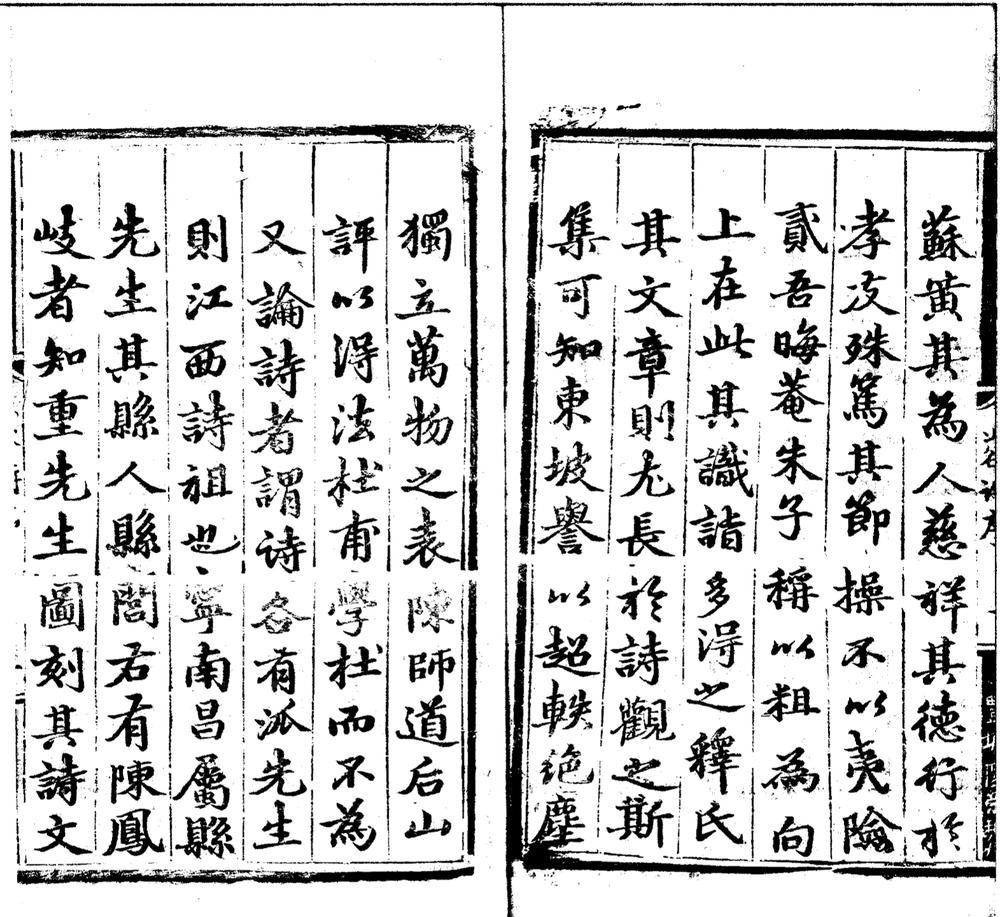 蘇黄其為人慈祥其徳行扵
孝友殊篤其節操不以夷險
貳吾晦菴朱子稱以粗為向
上在此其識詣多淂之釋氏
其文章則尤長扵詩觀之斯
集可知東坡譽以超軼絶塵
獨立萬物之表陳師道后山
評以淂法杜甫學杜而不為
又論詩者謂诗各有派先生
則江西詩祖也寧南昌屬縣
先生其縣人縣閭右有陳鳳
岐者知重先生圖刻其詩文